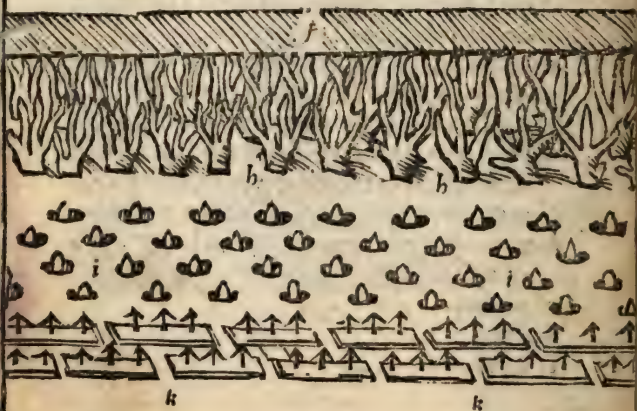 f
h h
i i
k k